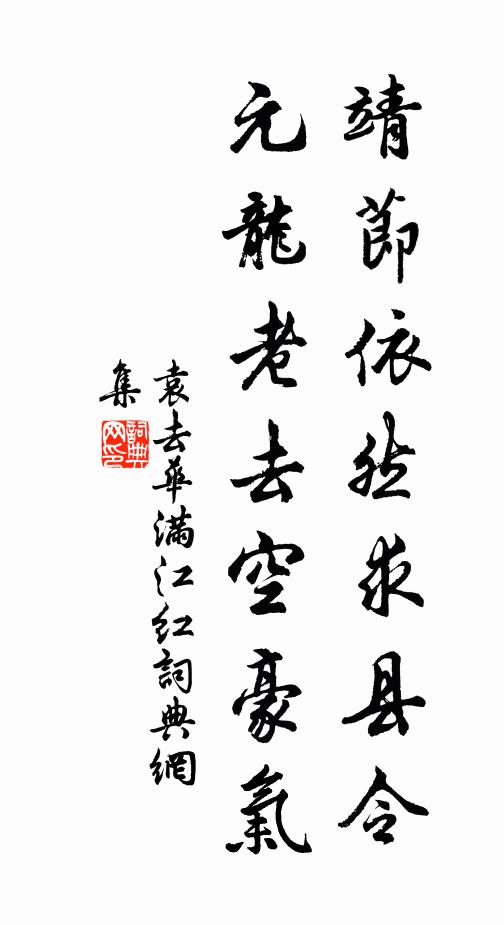 靖節依然求县令
元龍老去空豪氣
袁去華滿江紅詞典網
集
詞典网印